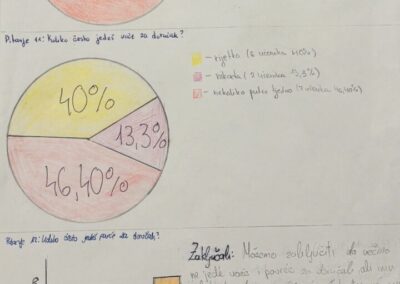 Pitanje 11: Koliko često jedeš voće za doručak?
- rijetko (6 učenika 40%)
- nikada (2 učenika 13,3%)
- nekoliko puta tjedno (7 učenika 46,40%)
40%
13,3%
46,40%
Pitanje 12: Koliko često jedeš povrće za doručak?
Zaključak: Možemo zaključiti da većina
ne jede voće i povrće za doručak ali
8